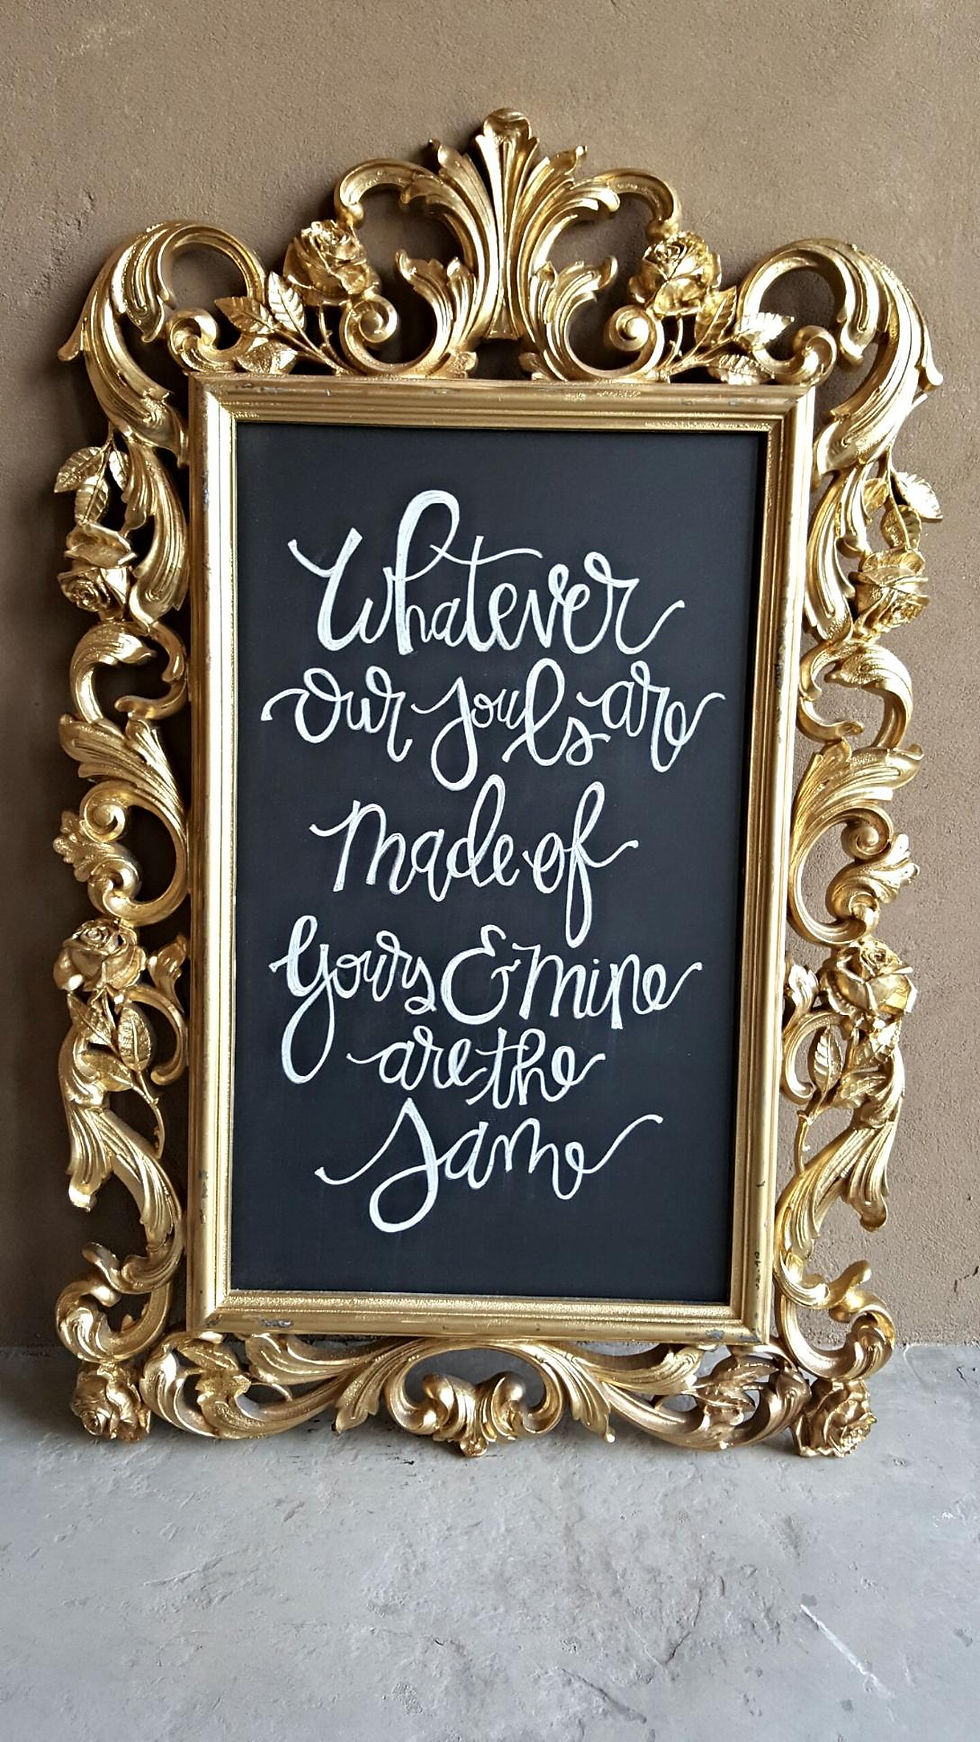 Whatever
our souls are
made of
yours & mine
are the
same